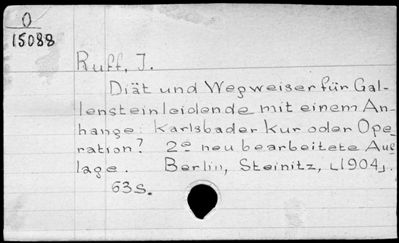 O
15088
Ruff, J.
Diät und Wegweiser für Gal-
lensteinleidende mit einem An-
hange: Karlsbader Kur oder Ope-
ration? 2e neu bearbeitete Auf
lage. Berlin, Steinitz, [1904].
63 S.